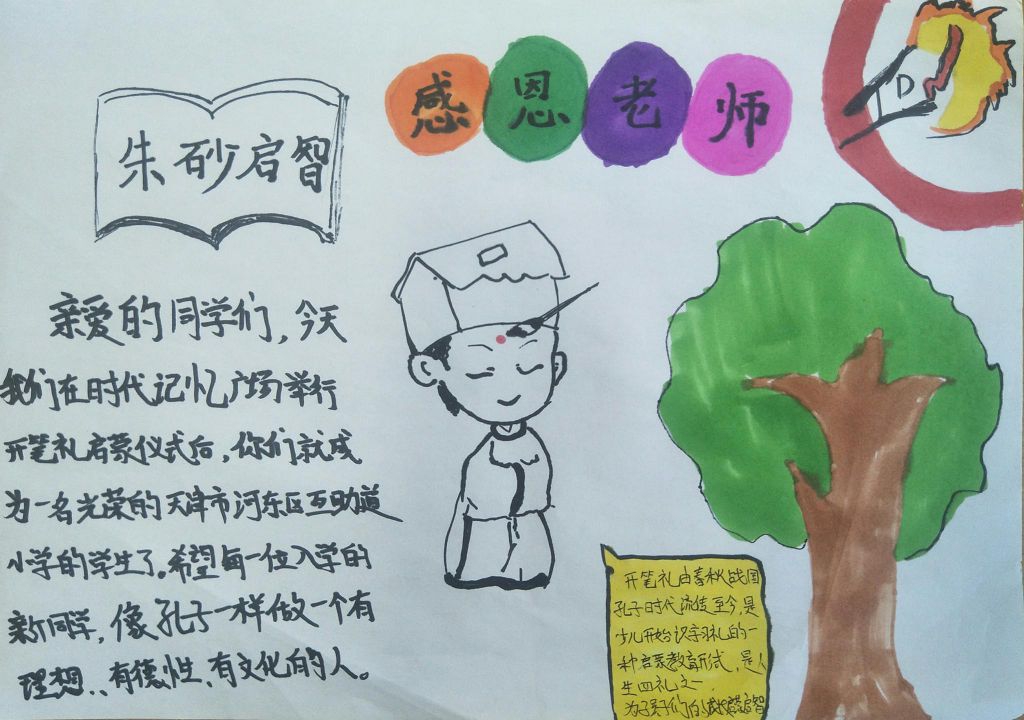 感恩老师
D
朱砂启智
亲爱的同学们，今天
我们在时代记忆广场举行
开笔礼启蒙仪式后，你们就成
为一名光荣的天津市河东区互助道
小学的学生了。希望每一位入学的
新同学，像孔子一样做一个有
理想、有德性、有文化的人。
开笔礼由春秋战国
孔子时代流传至今，是
少儿开始识字习礼的一
种启蒙教育形式，是人
生四礼之一.
为孩子们的